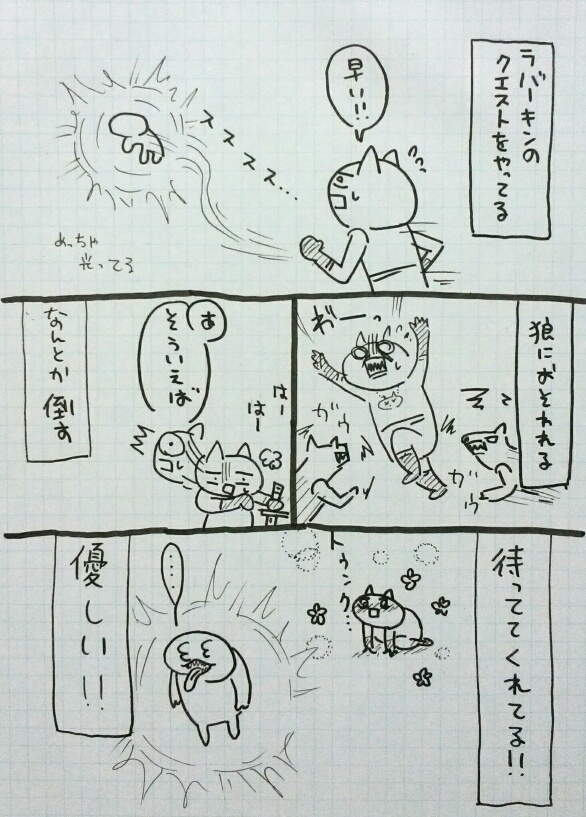 ラバーキンの
クエストをやってる
早い!!
スススス…
めっちゃ
光ってる
狼におそわれる
ぎゃーっ
ガウ
ガウ
はー
はー
あ
そういえば
なんとか倒す
待っててくれてる!!
トゥンク…
……
優しい!!